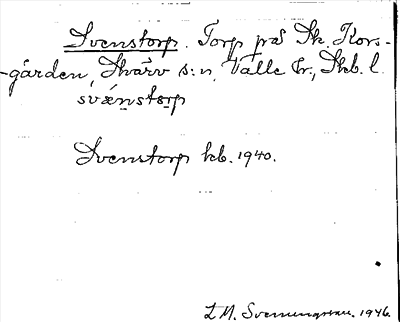 Svenstorp. Torp på Sk. Kors-
-gården, Skärv s:n, Valle hr., Skb. l.
svǽnstɒrp
Svenstorp kb. 1940.
L. M. Svenungsson. 1946.